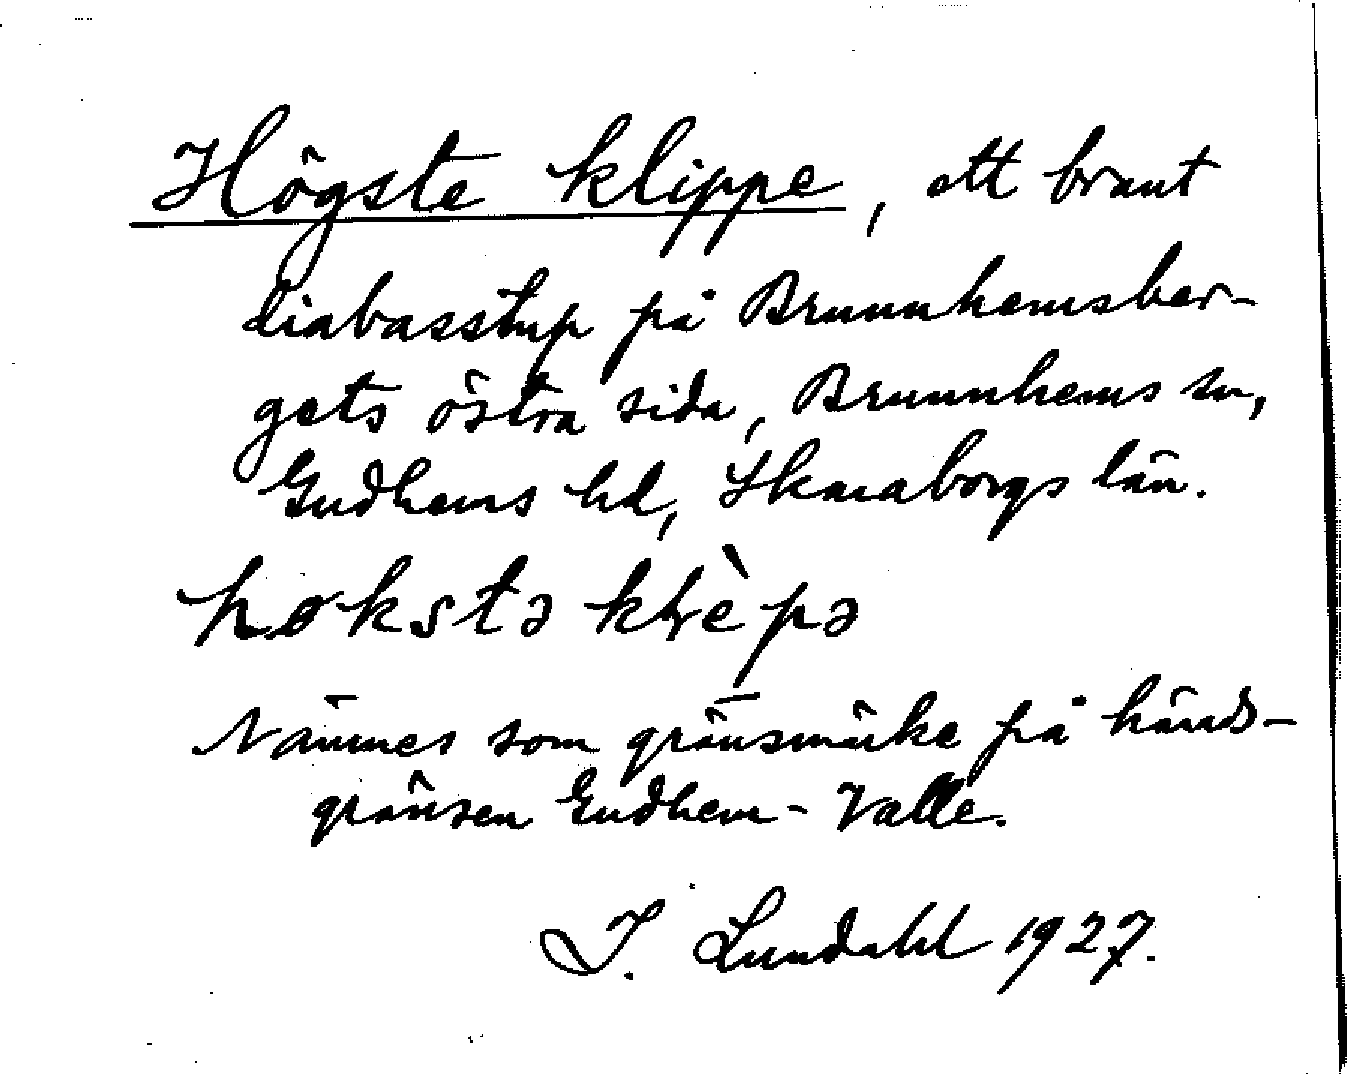 Högste klippe, ett brant
diabasstup på Brunnhemsber-
gets östra sida, Brunnhems sn,
Gudhems hd, Skaraborgs län.
høkstə klèpə
Nämnes som gränsmärke på härads-
gränsen Gudhem - Valle.
I. Lundahl 1927.